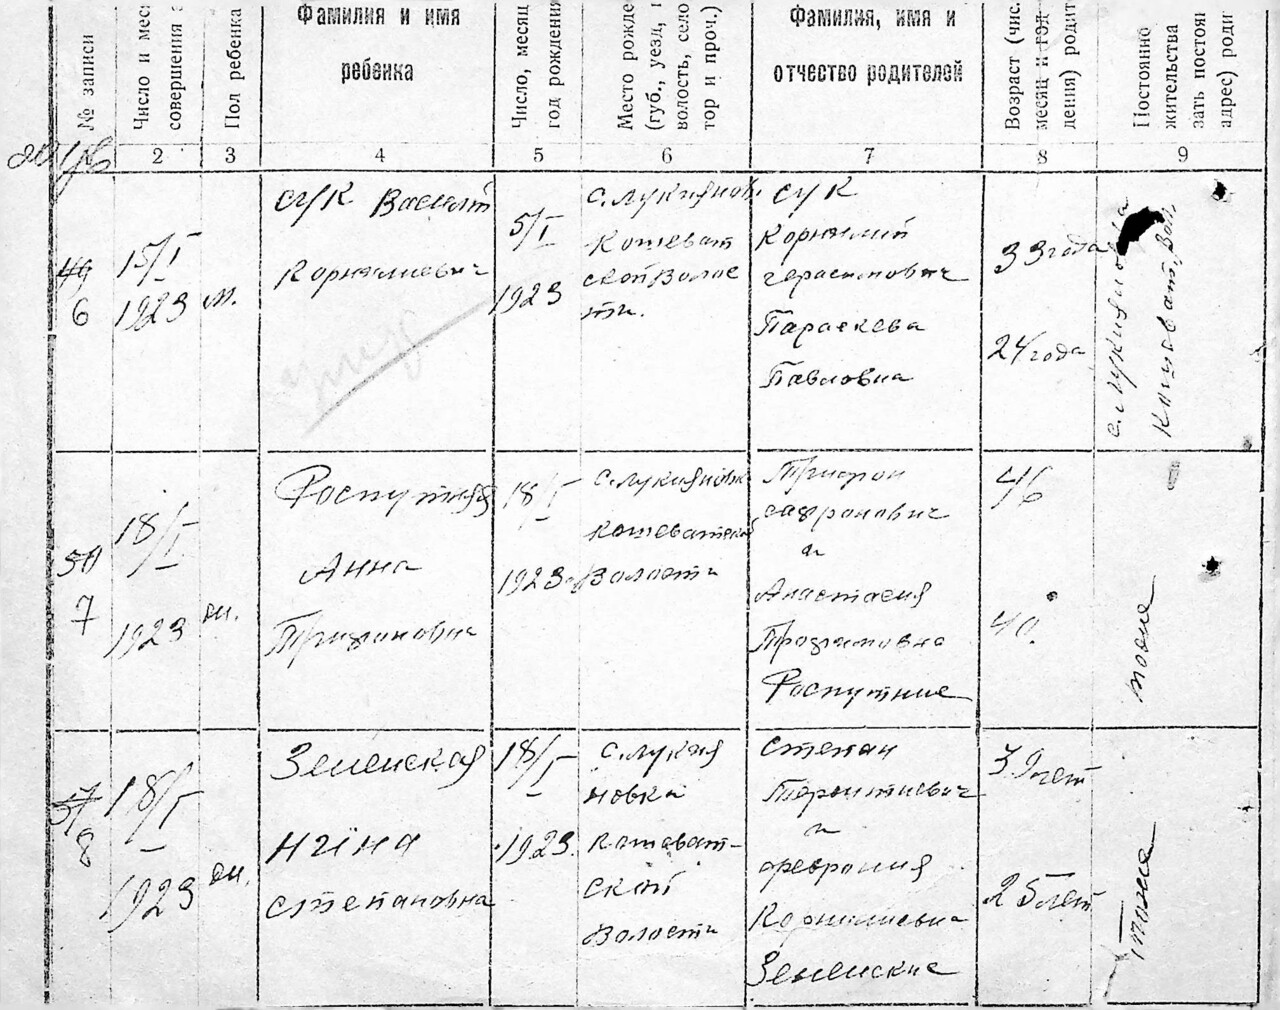 № записи
Число и мес
совершения з
Пол ребенка
Фамилия и имя
ребенка
Число, месяц
год рождения
Место рожде
(губ., уезд,
волость, село
тор и проч.)
Фамилия, имя и
отчество родителей
Возраст (чис.
месяц и год
дения) родит
Постоянно
жительства
зать постоя
адрес) роди
2 3 4 5 6 7 8 9
49
6
15/I
1923
м.
Сук Василий
Корнилиевич
5/I
1923
с. Лукиянов.
Кошеват
ской Волос
ти.
Сук
Корнилий
Герасимович
Параскева
Павловна
33 года
24 года
с. Лукияновка
Кошеват. Вол.
50
7
18/I
1923
Роспутняя
Анна
18/I
1923
с. Лукияновк
Кошеватской
Волости
Трифон
Сафронович
и
Анастасия
Трофимовна
Роспутние
46
40.
тоже
51
8
18/I
1923
Зеленская
Нгіна
Степановна
18/I
1923.
с. Лукия
новка
Кошеват-
ской
Волости
Степан
Терентиевич
и
Феврония
Корнилиевна
Зеленские
39 лет
25 лет
тоже